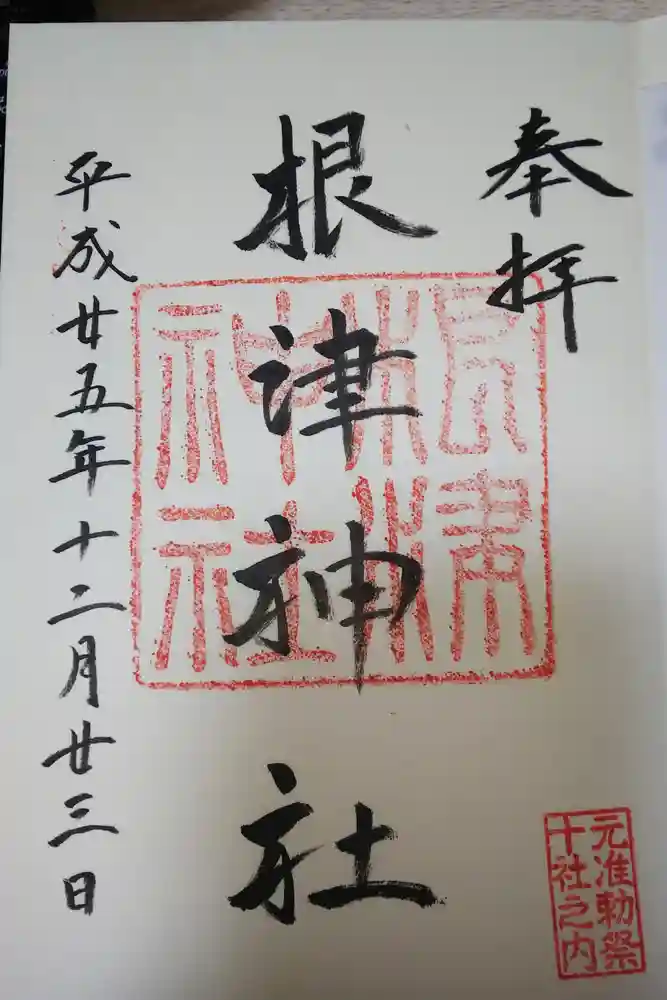 奉拝
根津神社
根津
神社
元准勅祭
十社之内
平成廿五年十二月廿三日